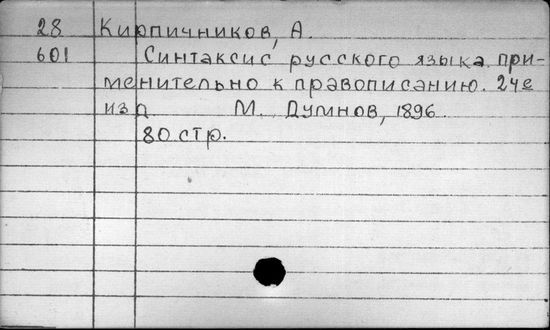 28 Кирпичников, А.
601 Синтаксис русского языка при-
менительно к правописанию. 24е
изд М. Думнов, 1896
80 стр.